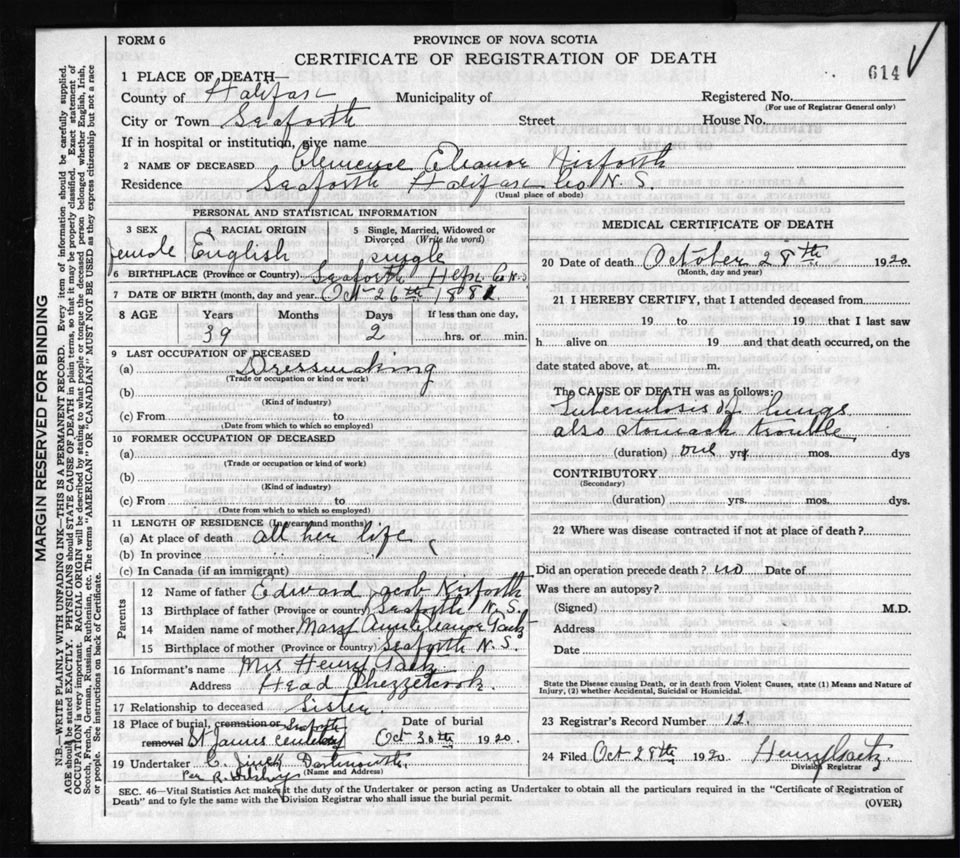 FORM 6
PROVINCE OF NOVA SCOTIA
CERTIFICATE OF REGISTRATION OF DEATH
614
1 PLACE OF DEATH—
County of Halifax Municipality of Registered No.
(For use of Registrar General only)
City or Town Seaforth Street House No.
If in hospital or institution, give name
2 NAME OF DECEASED Clemence Eleanor Nieforth
Residence Seaforth Halifax Co N. S.
(Usual place of abode)
PERSONAL AND STATISTICAL INFORMATION
3 SEX 4 RACIAL ORIGIN 5 Single, Married, Widowed or Divorced (Write the word)
female English single
6 BIRTHPLACE (Province or Country) Seaforth Co N.S.
7 DATE OF BIRTH (month, day and year) Oct 26th 1881
8 AGE Years Months Days If less than one day,
39 2 hrs. or min.
9 LAST OCCUPATION OF DECEASED
(a) Dressmaking
(Trade or occupation or kind of work)
(b)
(Kind of industry)
(c) From to
(Date from which to which so employed)
10 FORMER OCCUPATION OF DECEASED
(a)
(Trade or occupation or kind of work)
(b)
(Kind of industry)
(c) From to
(Date from which to which so employed)
11 LENGTH OF RESIDENCE (In years and months)
(a) At place of death all her life
(b) In province
(c) In Canada (if an immigrant)
Parents
12 Name of father Edward Jacob Nieforth
13 Birthplace of father (Province or country) Seaforth N. S.
14 Maiden name of mother Mary Gaetz
15 Birthplace of mother (Province or country) Seaforth N. S.
16 Informant's name Mrs Henry Gaetz
Address Head Chezzetcook
17 Relationship to deceased Sister
18 Place of burial, cremation or removal Seaforth St James Cemetery Date of burial Oct 30th 1920
19 Undertaker Dartmouth
(Name and Address)
per
MEDICAL CERTIFICATE OF DEATH
20 Date of death October 28th 1920
(Month, day and year)
21 I HEREBY CERTIFY, that I attended deceased from
19 to 19 that I last saw
h alive on 19 and that death occurred, on the
date stated above, at m.
The CAUSE OF DEATH was as follows:
Tuberculosis of lungs
also stomach trouble
(duration) one yrs mos. dys
CONTRIBUTORY
(Secondary)
(duration) yrs. mos. dys.
22 Where was disease contracted if not at place of death?
Did an operation precede death? no Date of
Was there an autopsy?
(Signed) M.D.
Address
Date
State the Disease causing Death, or in death from Violent Causes, state (1) Means and Nature of
Injury, (2) whether Accidental, Suicidal or Homicidal.
23 Registrar's Record Number 12.
24 Filed Oct 28th 1920 Henry Gaetz
Division Registrar
SEC. 46—Vital Statistics Act makes it the duty of the Undertaker or person acting as Undertaker to obtain all the particulars required in the "Certificate of Registration of
Death" and to fyle the same with the Division Registrar who shall issue the burial permit.
(OVER)
MARGIN RESERVED FOR BINDING
N.B.—WRITE PLAINLY WITH UNFADING INK—THIS IS A PERMANENT RECORD. Every item of information should be carefully supplied.
AGE should be stated EXACTLY. PHYSICIANS should STATE CAUSE OF DEATH in plain terms, so that it may be properly classified. Exact statement of
OCCUPATION is very important. RACIAL ORIGIN will be described by stating to what people or tongue the deceased person belonged whether English, Irish,
Scotch, French, German, Russian, Ruthenian, etc. The terms "AMERICAN" OR "CANADIAN" MUST NOT BE USED as they express citizenship but not a race
or people. See instructions on back of Certificate.